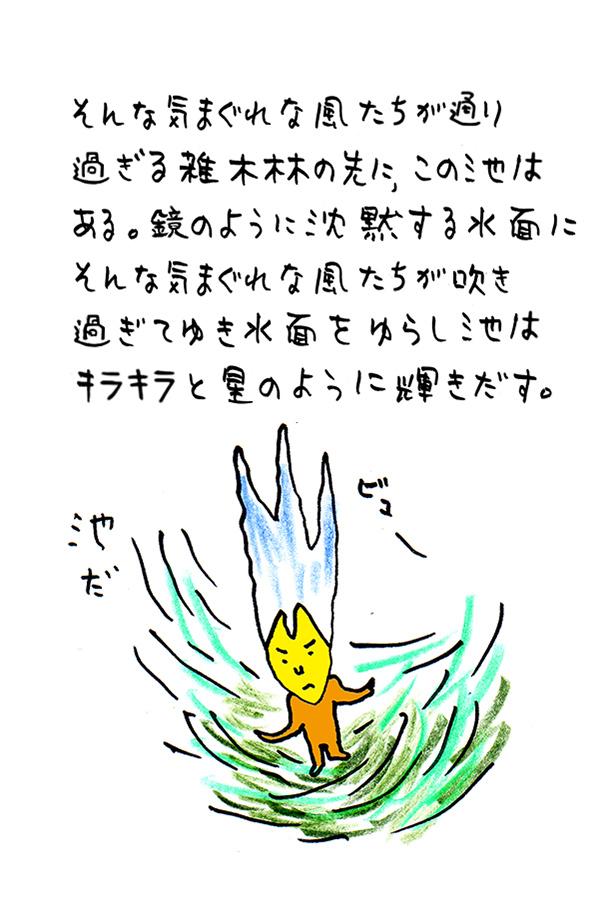 そんな気まぐれな風たちが通り
過ぎる雑木林の先に、この池は
ある。鏡のように沈黙する水面に
そんな気まぐれな風たちが吹き
過ぎてゆき水面をゆらし池は
キラキラと星のように輝きだす。
ビュー
池
だ